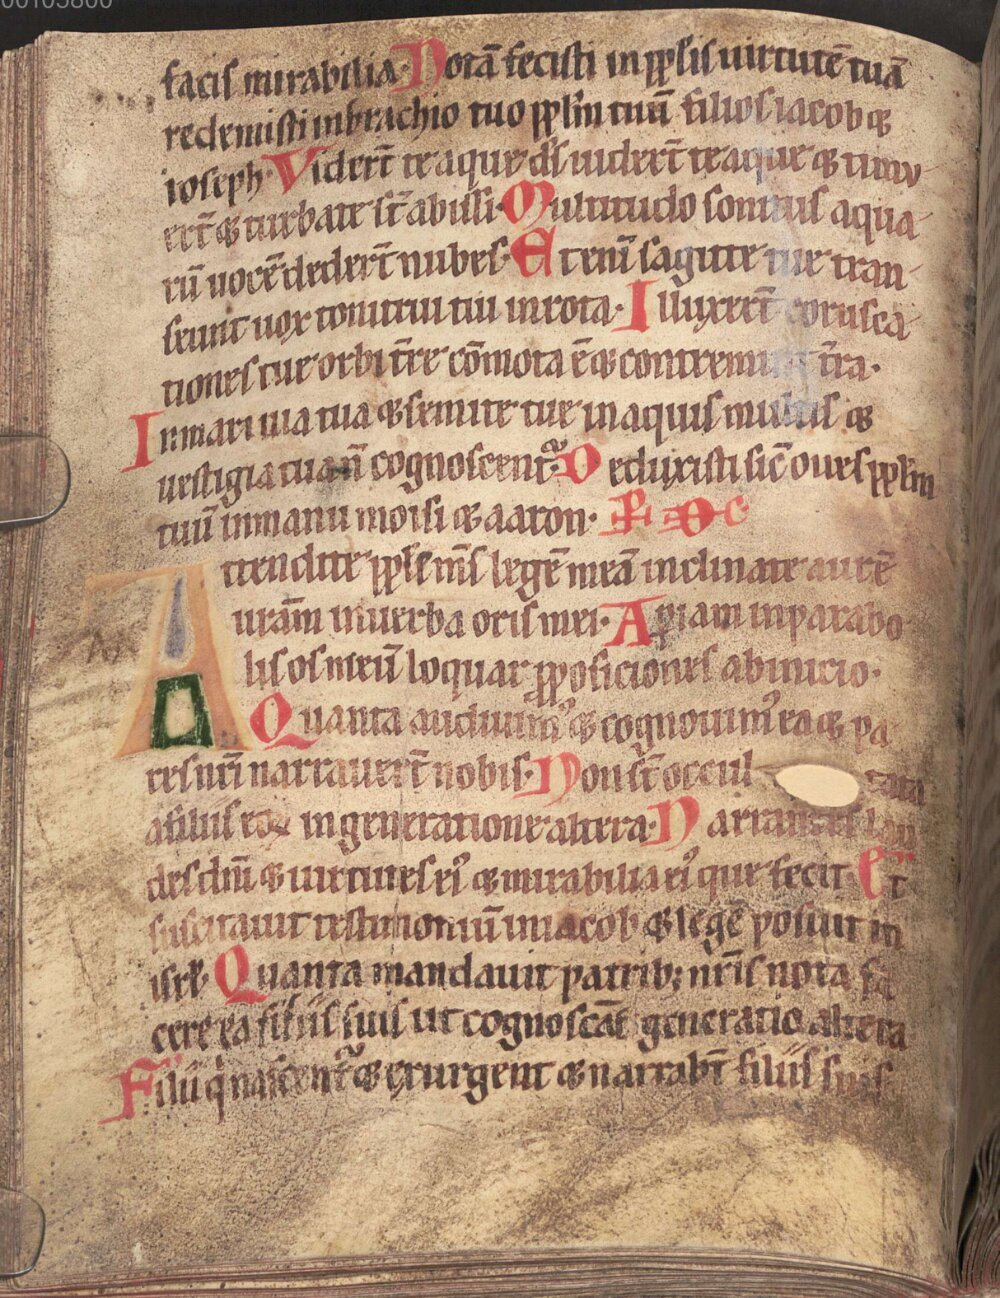 00105800
facis mirabilia. Notā fecisti in pplis uirtutē tuā
redemisti inbrachio tuo pplm̄ tuū filios iacob &
ioseph. Viderт̄ te aque ds̄ uidert̄ te aque & timu
ert̄ & turbate st̄ abissi. Multitudo sonitus aqua
rū uocē dedert̄ nubes. Etenī sagitte tue tran
seunt uox tonitrui tui inrota. Illuxert̄ corusca
tiones tue orbi t̄re cōmota ē & contremuit t̄ra.
Inmari uia tua & semite tue inaquis multis &
uestigia tua n̄ cognoscent̄. Deduxisti sic̄ oues pplm̄
tuū inmanu moisi & aaron.
Attendite pple ms̄ legē meā inclinate aurē
urām inuerba oris mei. Apiam inparabo
lis os meū loquar pposiciones abinicio.
Quanta audiuim᷒ & cognouim᷒ ea & pa
tes nr̄i narrauert̄ nobis. Non st̄ occul tata
afiliis eoꝝ ingeneratione altera. Narrantes lau
des dn̄i & uirtutes ei᷒ & mirabilia ei᷒ que fecit. Et
suscitauit testimoniū iniacob & legē posuit in
isrl. Quanta mandauit patrib; nr̄is nota fa
cere ea filiis suis ut cognoscāt generatio altera
Filii q̇ nascent̄ & exurgent & narrabt̄ filiis suis